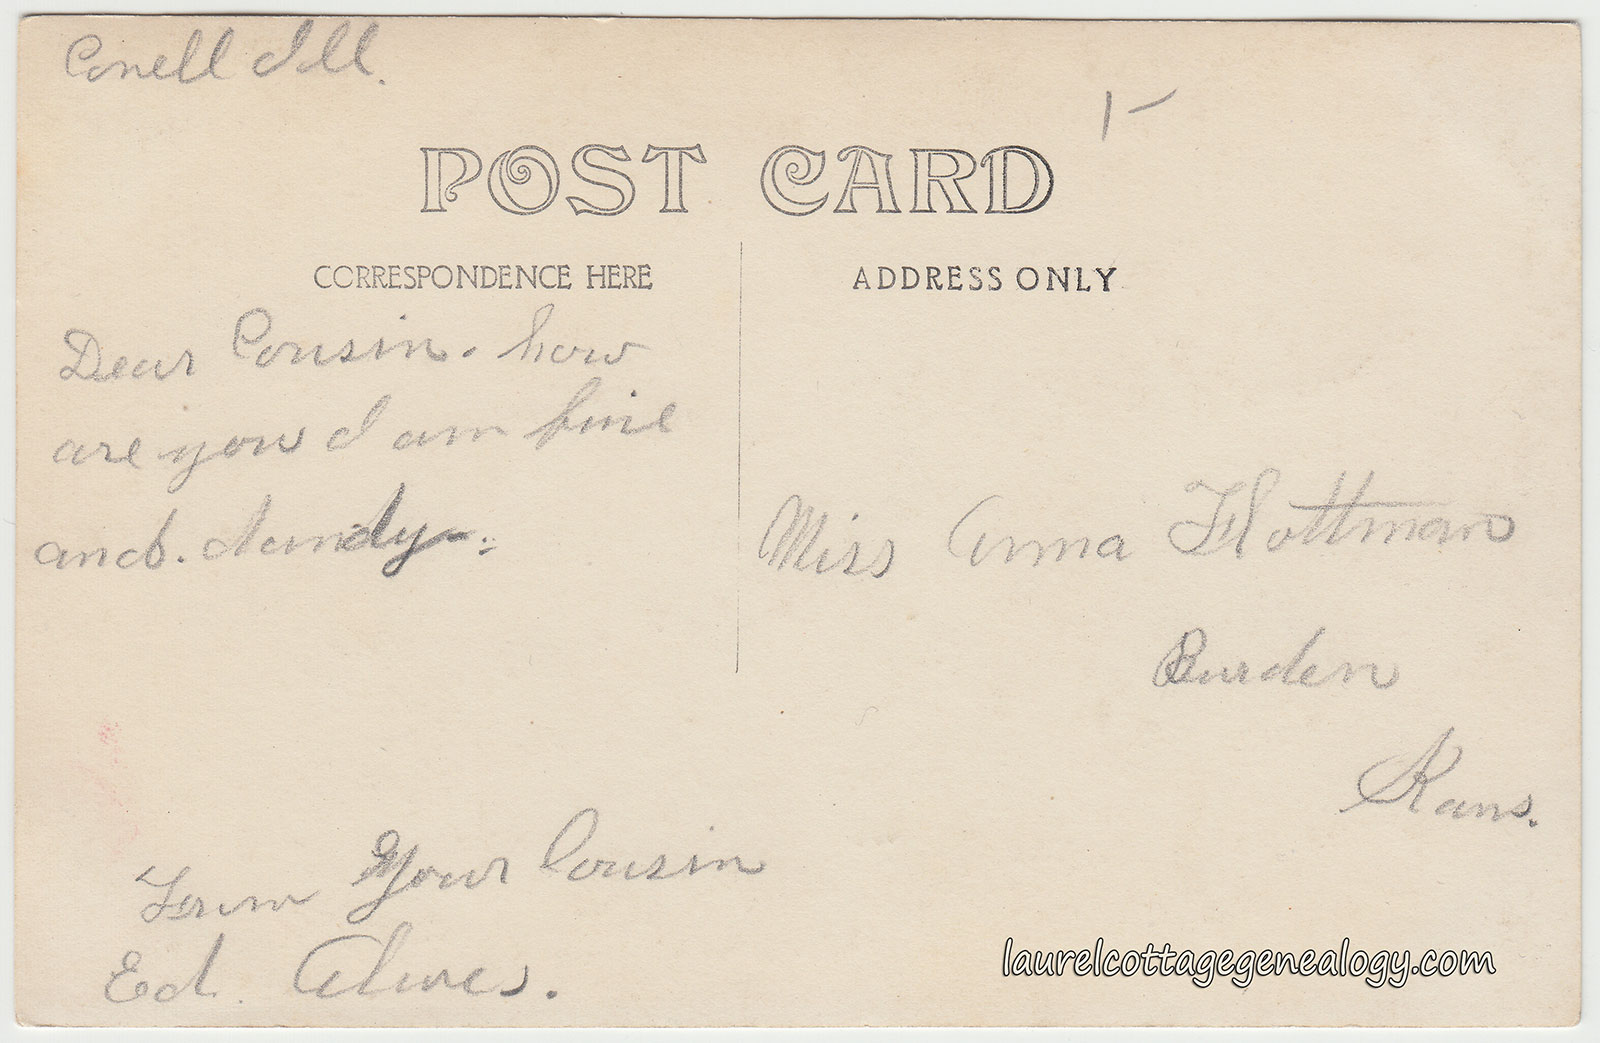 Conell Ill.
1-
POST CARD
CORRESPONDENCE HERE
ADDRESS ONLY
Dear Cousin. how
are you I am fine
and. dandy
Miss Anna Flottman
Burden
Kans.
From Your Cousin
Ed. Alwes.
laurelcottagegenealogy.com